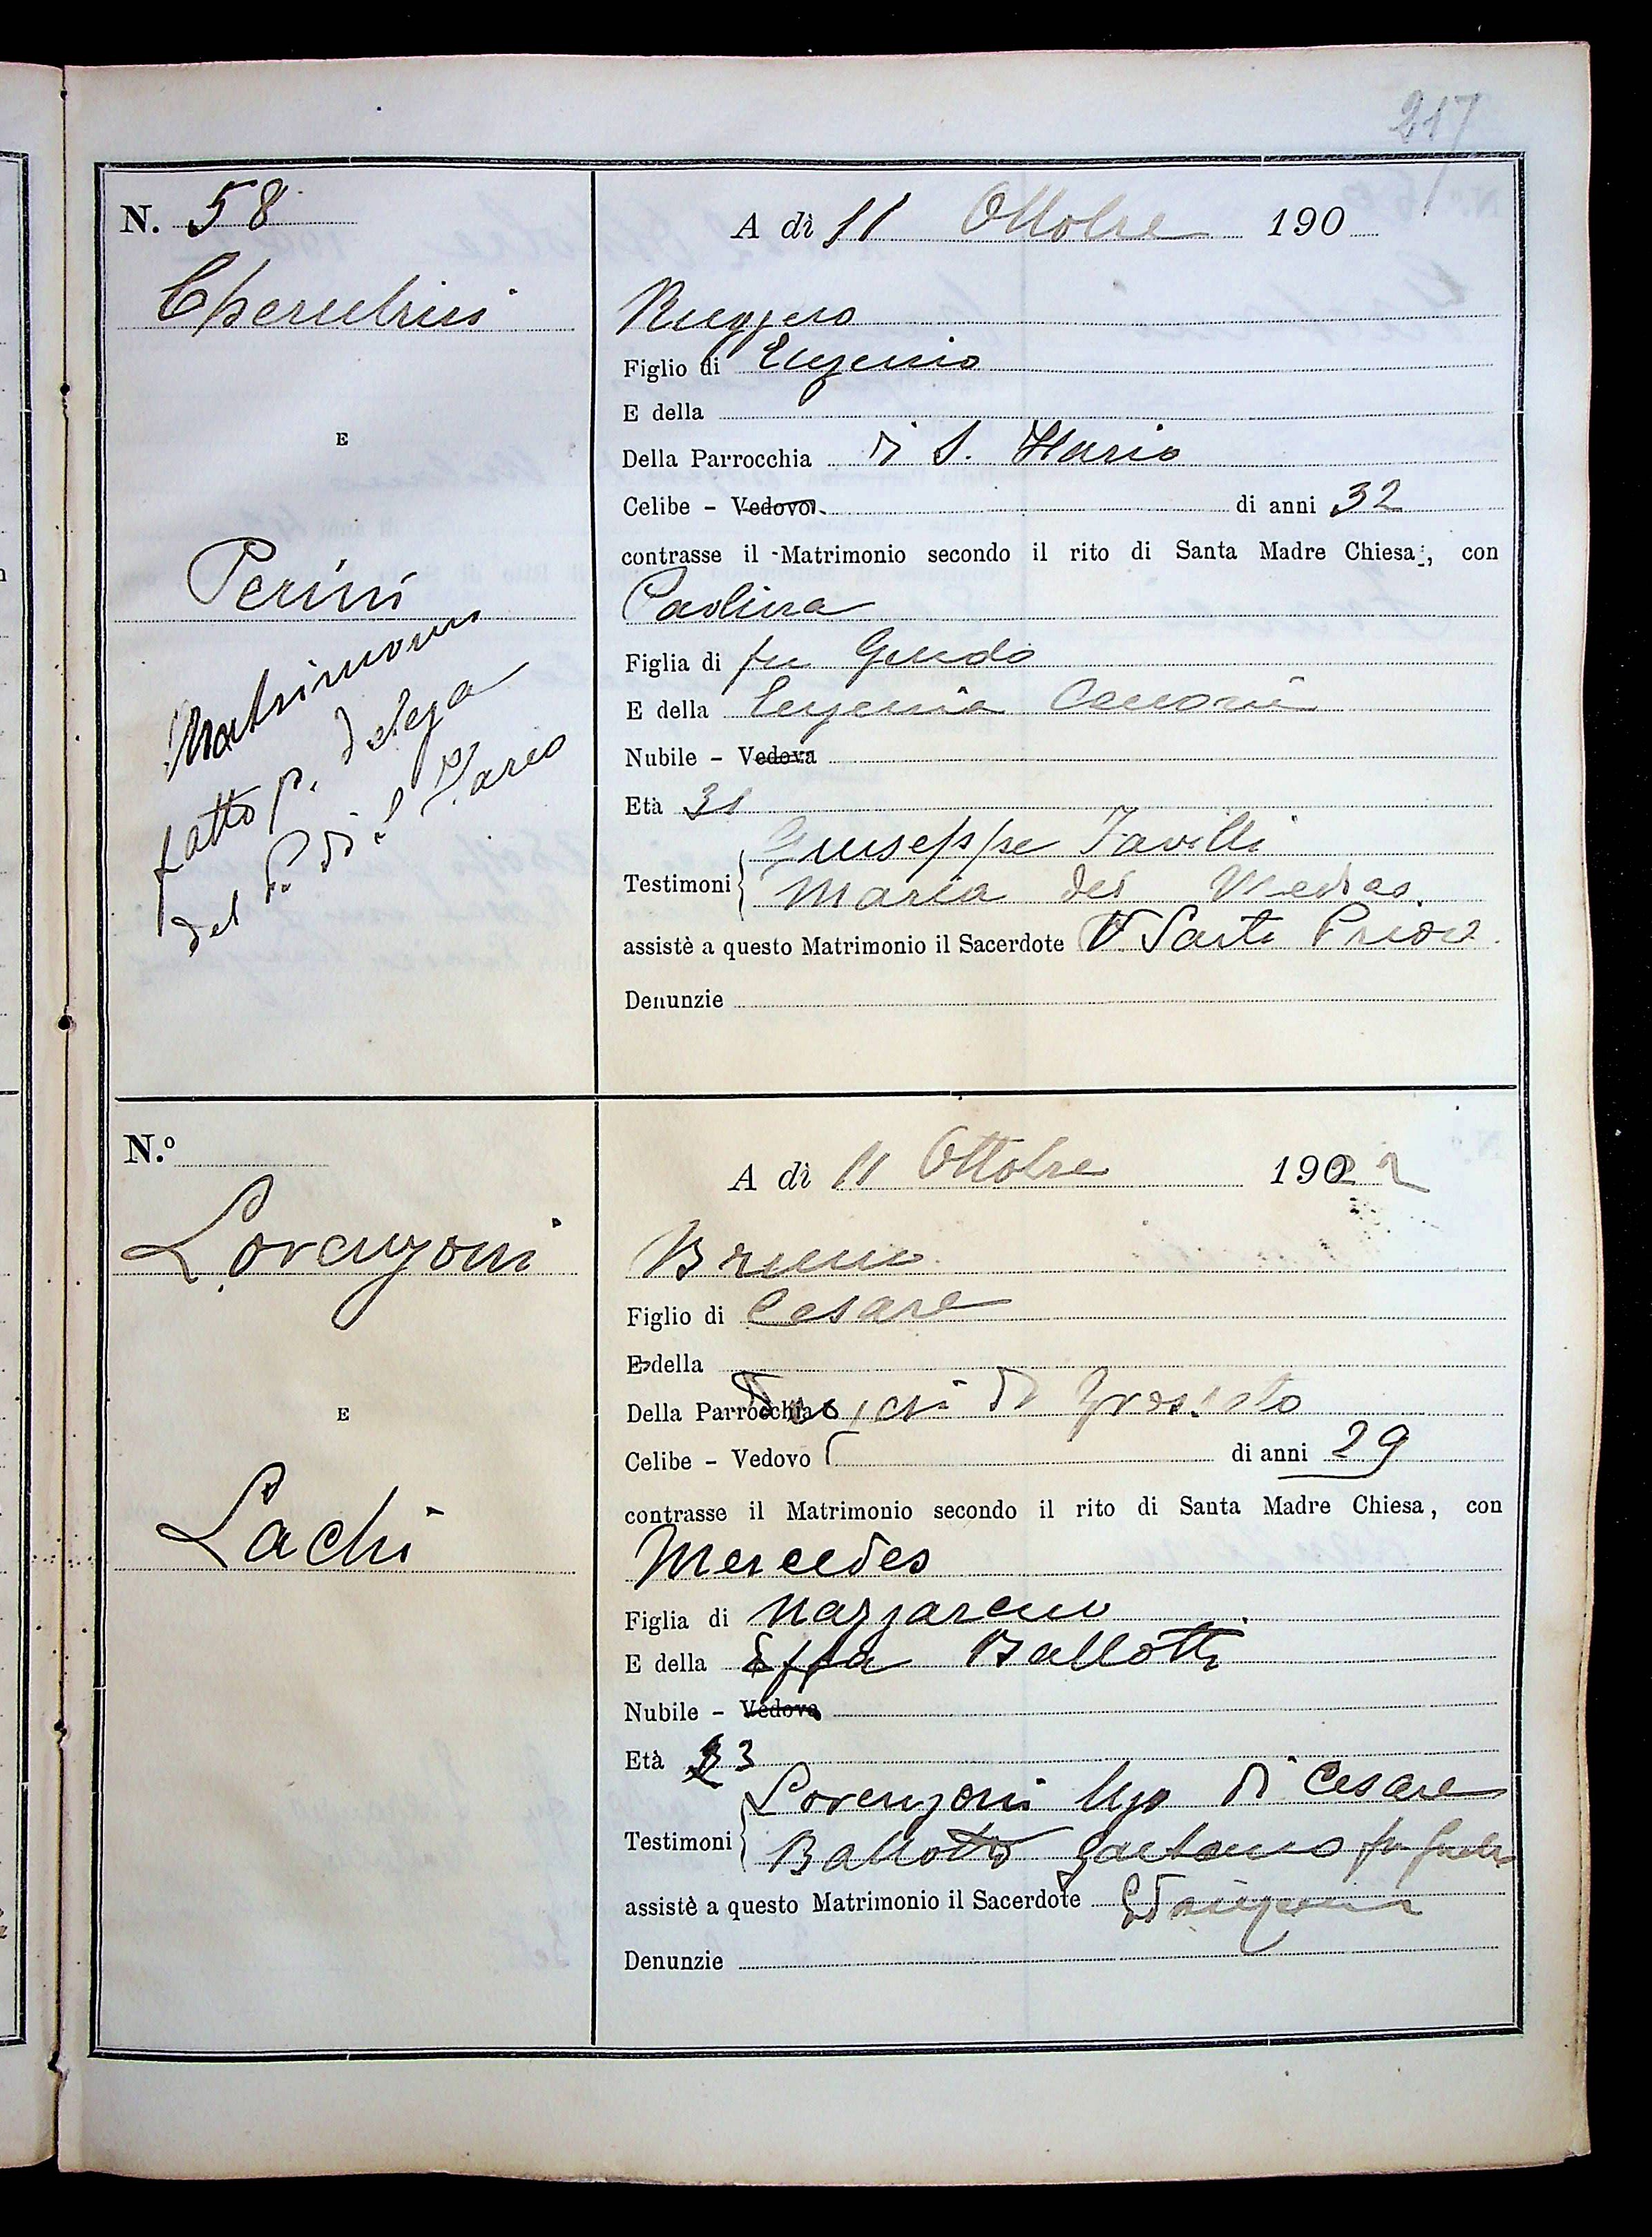 217
N. 58
A dì 11 Ottobre 190
Cherubini
Ruggero
Figlio di Eugenio
E della
E
Della Parrocchia di S. Ilario
Celibe - Vedovo di anni 32
contrasse il Matrimonio secondo il rito di Santa Madre Chiesa, con
Perini
Paolina
Figlia di fu Guido
E della Eugenia
Nubile - Vedova
Età 31
Matrimonio
fatto p. delega
del P. di S. Ilario
Giuseppe Tavilli
Testimoni
Maria dei
assistè a questo Matrimonio il Sacerdote V Sarti Priore
Denunzie
N.º
A dì 11 Ottobre 1902 2
Lorenzoni
Bruno
Figlio di Cesare
E della
E
Della Parrocchia di Grosseto
Celibe - Vedovo di anni 29
contrasse il Matrimonio secondo il rito di Santa Madre Chiesa, con
Lachi
Mercedes
Figlia di Nazzareno
E della Effa Ballotti
Nubile - Vedova
Età 23
Lorenzoni Ugo di Cesare
Testimoni
Ballotti Gaetano fu
assistè a questo Matrimonio il Sacerdote
Denunzie